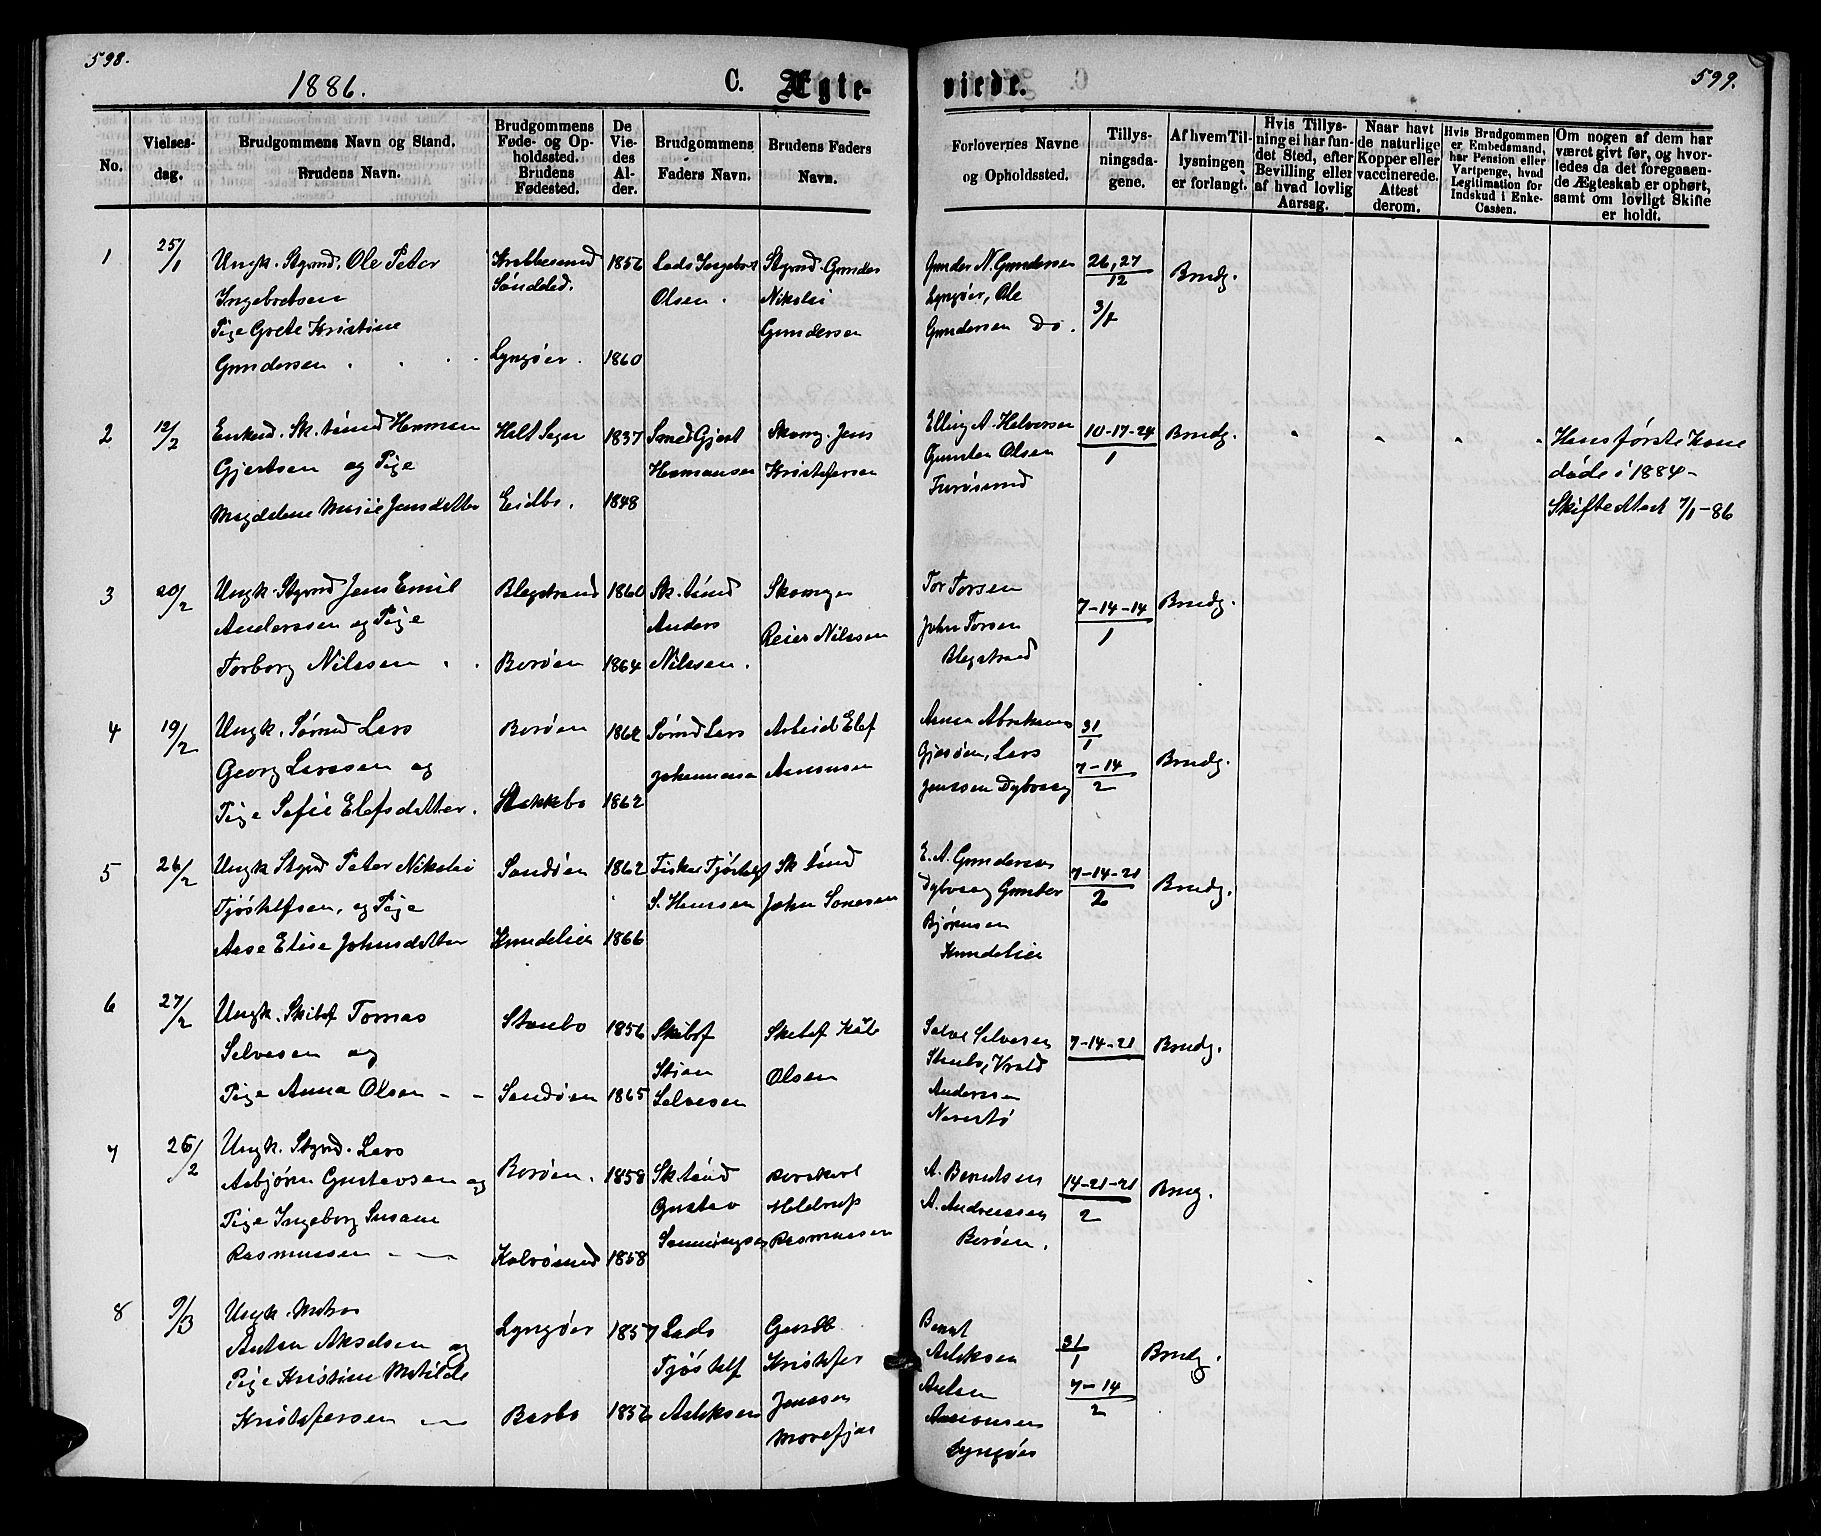 598.
1886.
C. Ægte-
viede.
599.
No.
Vielses-
dag.
Brudgommens Navn og Stand.
Brudens Navn.
Brudgommens
Føde- og Op-
holdssted.
Brudens
Fødested.
De
Vie-
des
Al-
der.
Brudgommens
Faders Navn.
Brudens Faders
Navn.
Forlovernes Navne
og Opholdssted.
Tillys-
ningsda-
gene.
Af hvem Til-
lysningen
er forlangt.
Hvis Tillys-
ning ei har fun-
det Sted, efter
Bevilling eller
af hvad lovlig
Aarsag.
Naar havt
de naturlige
Kopper eller
vaccinerede.
Attest
derom.
Hvis Brudgommen
er Embedsmand,
har Pension eller
Vartpenge, hvad
Legitimation for
Indskud i Enke-
Cassen.
Om nogen af dem har
været givt før, og hvor-
ledes da det foregaaen-
de Ægteskab er ophørt,
samt om lovligt Skifte
er holdt.
1
25/1
Ungk. Styrmd. Ole Peter
Ingebretsen
Pige Grete Kristine
Gundersen
Krabbesund
Søndeled.
Lyngøer.
1856
1860
Lods Ingebret
Olsen.
Styrmd. Gunder
Nikolai
Gundersen
Gunder N. Gundersen
Lyngøer, Ole
Gundersen Do.
26, 27
12
3/1
Brudg.
2
12/2
Enkmd. Sk. tømd Herman
Gjertsen og Pige
Magdelene Marie Jensdatter
Holt Sogn
Eidbo.
1837
1848
Smed Gjert
Hermansen
Skomg. Jens
Kristofersen
Elling A. Halvorsen
Gunder Olsen
Furøsund
10-17-24
1
Brudg.
Hans første Kone
døde i 1884-
Skifteattest 7/1-86
3
20/2
Ungk. Styrmd Jens Emil
Anderssen og Pige
Torborg Nilssen
Blegstrand
Borøen
1860
1864
Sk. tømd
Anders
Nilssen.
Skomager
Reier Nilssen
Tor Torsen
John Torsen
Blegstrand
7-14-14
1
Brudg.
4
19/2
Ungk. Sømd Lars
Georg Larssen og
Pige Sofie Elefsdatter.
Borøen
Stakkebo
1862
1862
Sømd Lars
Johannesen
Arbeid. Elef
Aanonsen
Gjesøen, Lars
Jenssen Dybvaag
31
1
7-14
2
Brudg.
5
26/2
Ungk Styrmd Peter Nikolai
Tjøstelfsen, og Pige
Aase Elise Johnsdatter
Sandøen
Knudelien
1862
1866
Fisker Tjøstelf
S. Hanssen
Sk tømd
John Sonesen
E. A. Gundersen
Dybvaag Gunder
Bjørnsen
Knudelien
7-14-21
2
Brudg.
6
27/2
Ungk. Skibsf Tomas
Selvesen og
Pige Anna Olsen - -
Staubo
Sandøen
1856
1865
Skibsf
Stian
Selvesen
Skibsf
Olsen
Salve Selvesen
Staubo, Vrald
Andersen
Neverstø
7-14-21
Brudg.
7
26/2
Ungk. Styrmd. Lars
Asbjørn Gustavsen og
Pige Ingeborg Susane
Rasmussen
Borøen.
Kalvøsund
1858
1858
Sk tømd
Gustav
Rasmussen
A. Berntsen
A. Andreassen
Borøen.
14-21-21
2
Brug.
8
9/3
Ungk. Matros
Anton Akselsen og
Pige Kristine Matilde
Kristofersen
Lyngøer
Barbo
1857
1856
Lods
Tjøstelf
Aslaksen
Gaardb
Kristofer
Jenssen
Morefjær
Bernt
Aslaksen
Anton
Aanonsen
Lyngøer
31
1
7-14
2
Brudg.